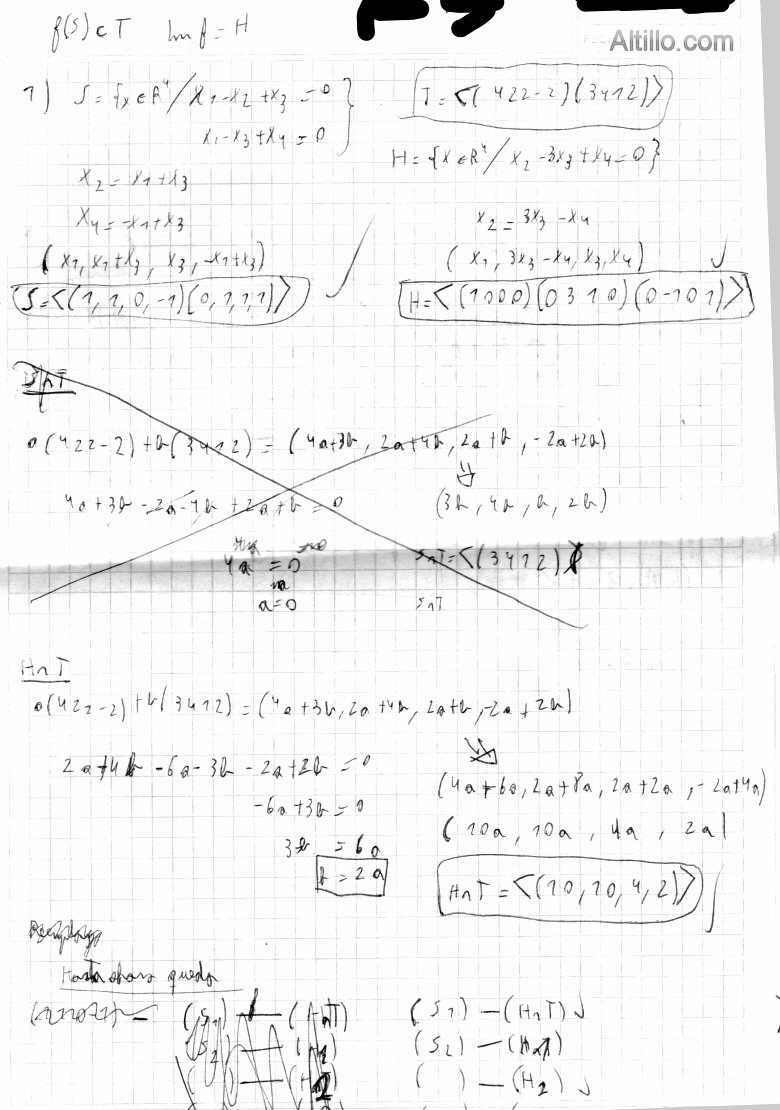 f(S) ⊂ T   Im f = H
Altillo.com
1) S = {x ∈ R⁴ / x1 - x2 + x3 = 0
x1 - x3 + x4 = 0 }
T = <(4 2 2 -2)(3 4 1 2)>
H = {x ∈ R⁴ / x2 - 3x3 + x4 = 0}
x2 = x1 + x3
x4 = -x1 + x3
(x1, x1+x3, x3, -x1+x3)
S = <(1, 1, 0, -1)(0, 1, 1, 1)> ✓
x2 = 3x3 - x4
(x1, 3x3 - x4, x3, x4) ✓
H = <(1 0 0 0)(0 3 1 0)(0 -1 0 1)>
S∩T
a(4 2 2 -2) + b(3 4 1 2) = (4a+3b, 2a+4b, 2a+b, -2a+2b)
4a + 3b - 2a - 4b + 2a + b = 0
⇓
(3b, 4b, b, 2b)
4a = 0
a = 0
S∩T = <(3 4 1 2)>
S∩T
H∩T
a(4 2 2 -2) + b(3 4 1 2) = (4a+3b, 2a+4b, 2a+b, -2a+2b)
2a + 4b - 6a - 3b - 2a + 2b = 0
-6a + 3b = 0
3b = 6a
b = 2a
(4a+6a, 2a+8a, 2a+2a, -2a+4a)
(10a, 10a, 4a, 2a)
H∩T = <(10, 10, 4, 2)>
Hasta ahora queda
(S1) — (H∩T)
(S1) — (H∩T) ✓
(S2) — (H1)
( ) — (H2) ✓